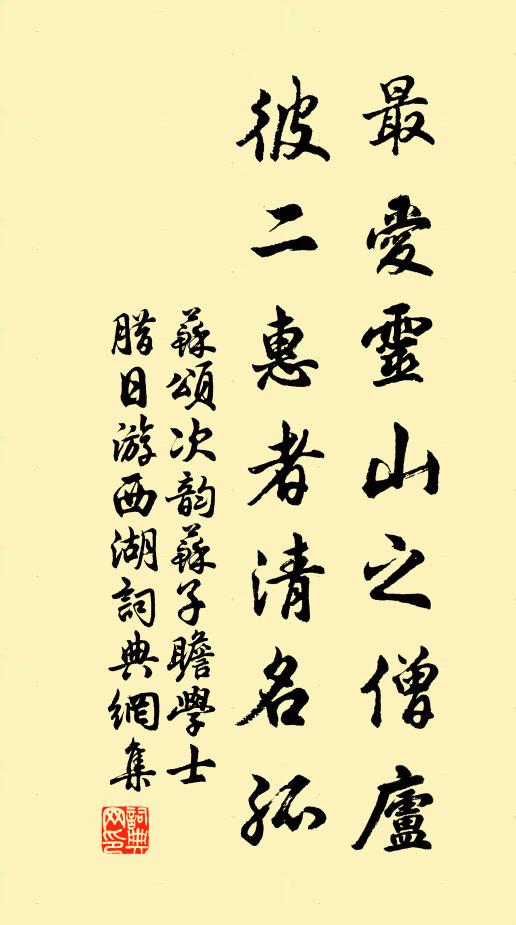 最愛靈山之僧廬
彼二惠者清名孤
蘇頌次韵蘇子瞻學士
腊日游西湖詞典網集
詞典網印